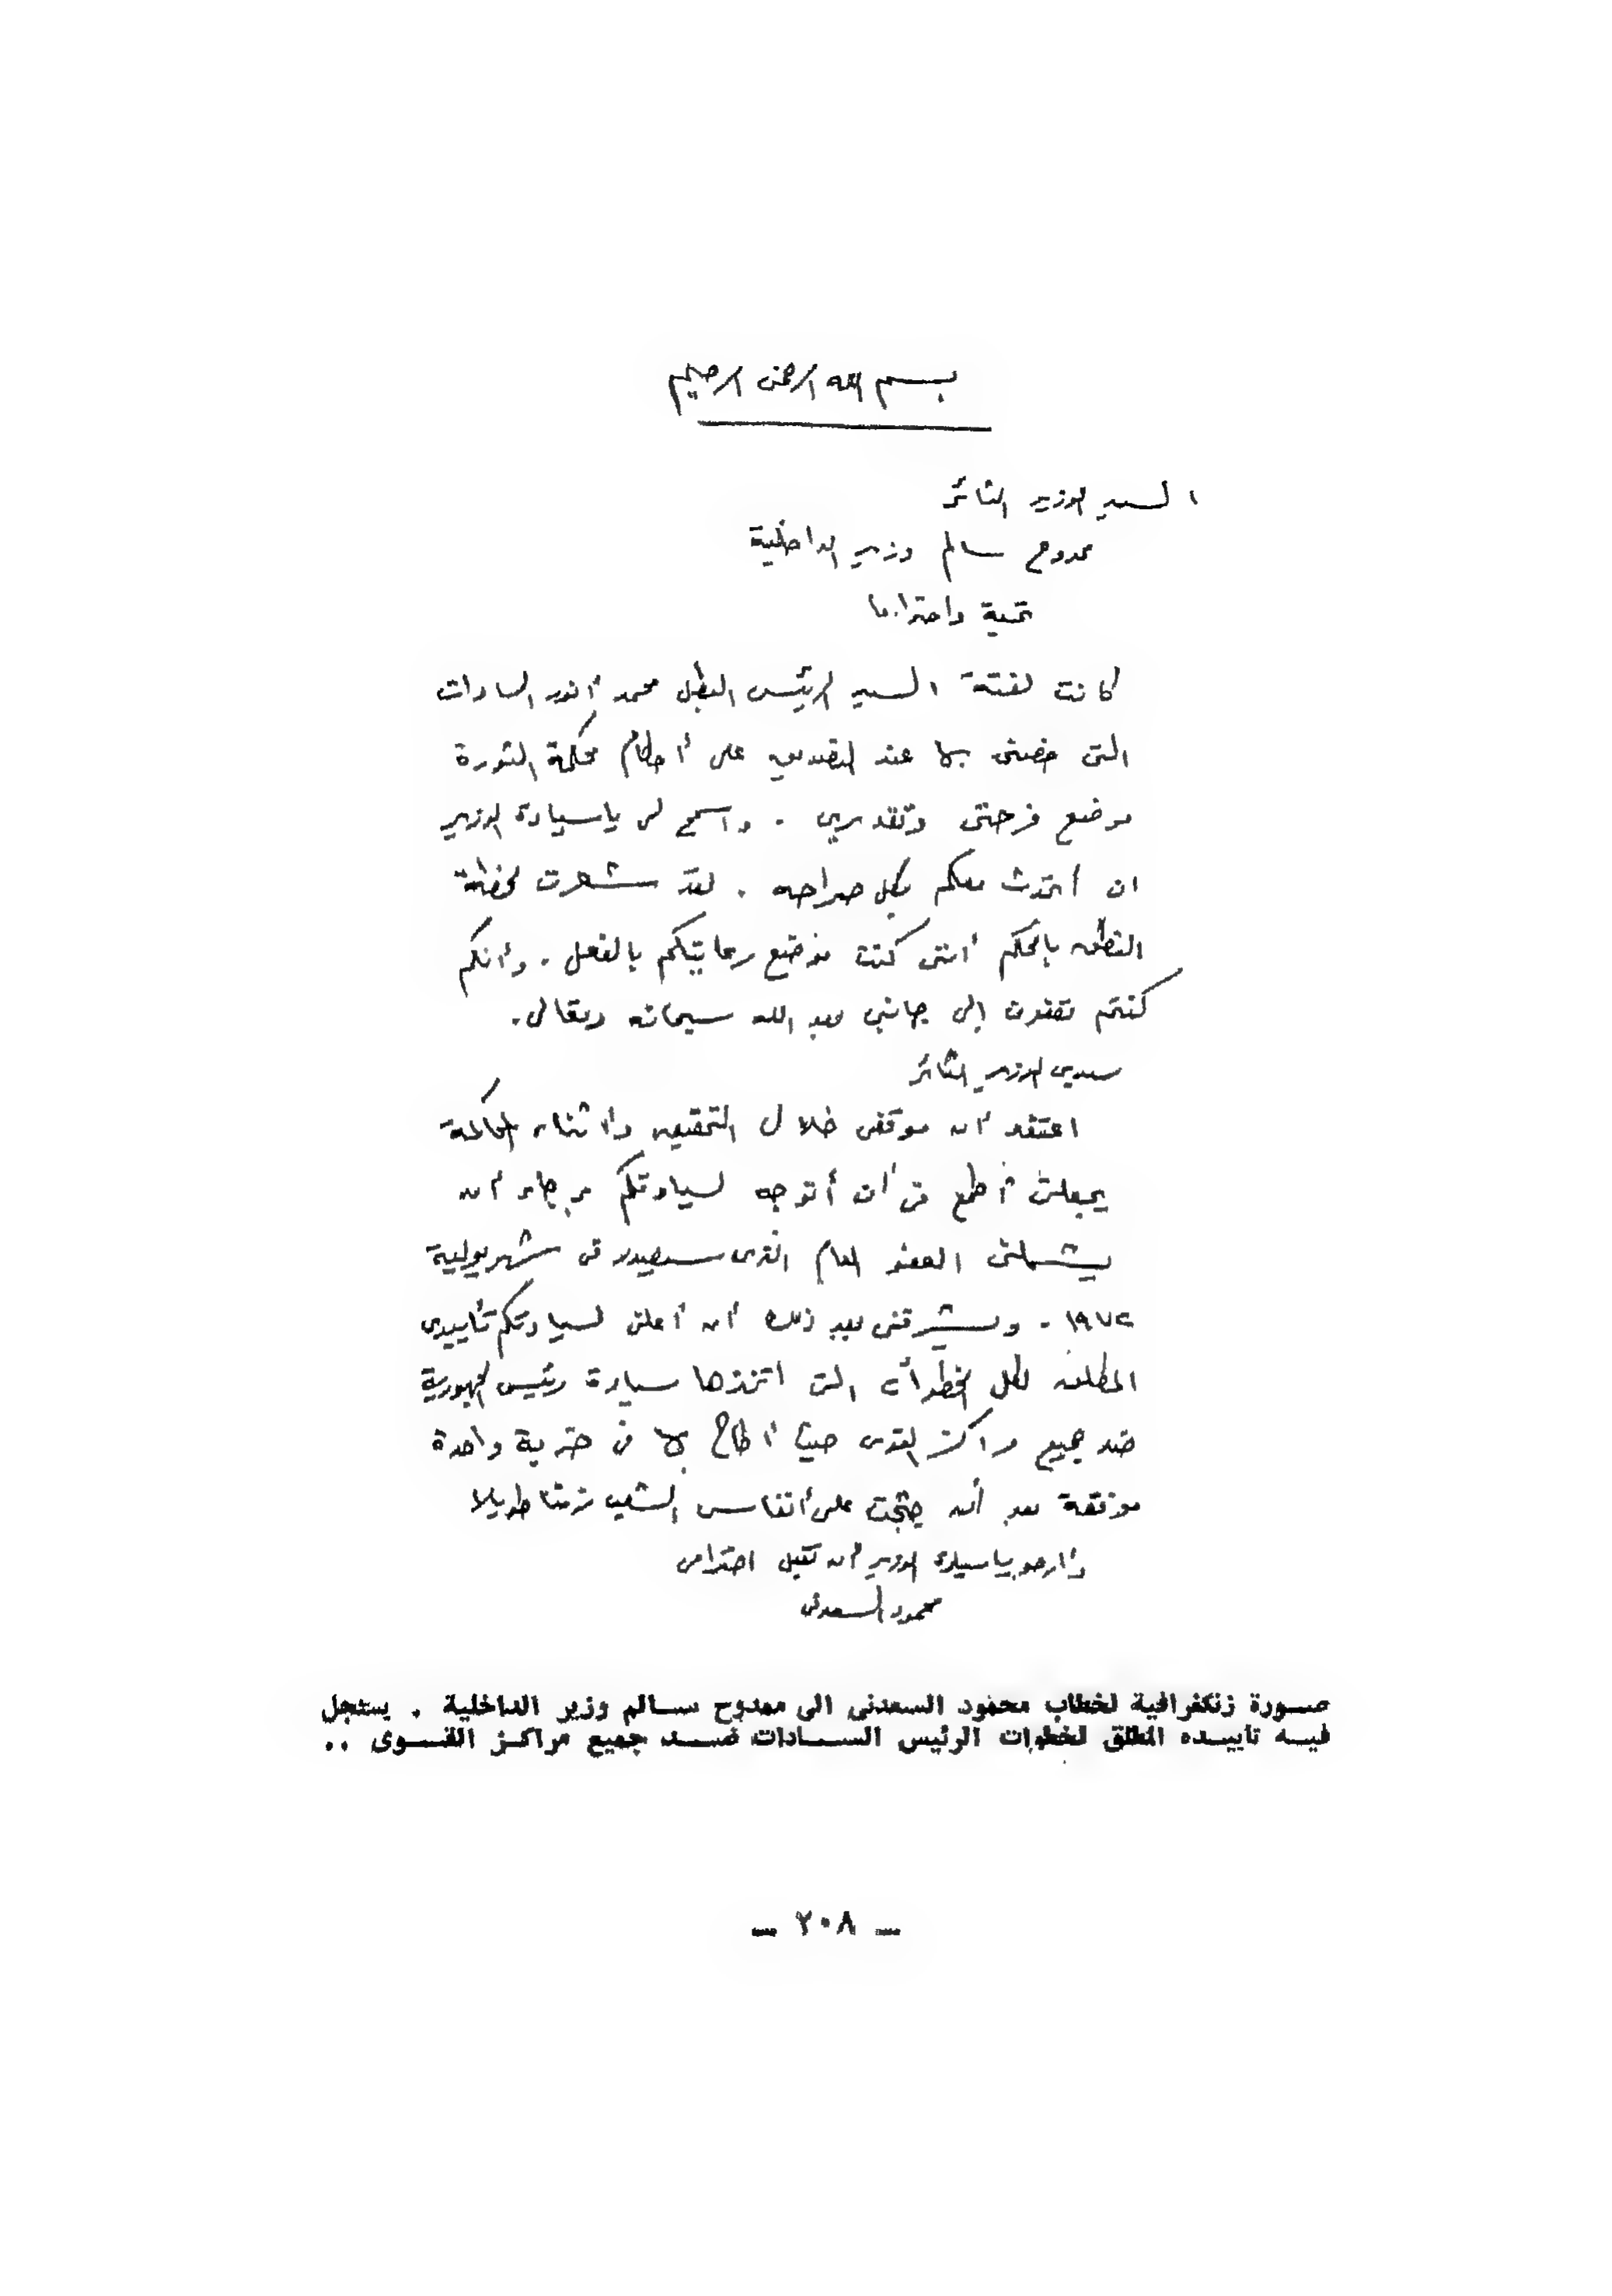 بسم الله الرحمن الرحيم
السيد الوزير الثائر
ممدوح سالم وزير الداخلية
تحية واحتراما
كانت لفتة السيد الرئيس البطل محمد أنور السادات
التى خصنى بها عند التصديق على أحكام محكمة الثورة
موضع فرحتى وتقديرى . واسمح لى ياسيادة الوزير
ان أتحدث معكم بكل صراحه . لقد شعرت لحظة
النطق بالحكم أننى كنت موضع رعايتكم بالفعل . وأنكم
كنتم تقفون إلى جانبى بعد الله سبحانه وتعالى .
سيدى الوزير الثائر
اعتقد أن موقفى خلال التحقيق وأثناء المحاكمة
يجعلنى أطمع فى أن أتوجه لسيادتكم برجاء أن
يشملنى العفو العام الذى سيصدر فى شهر يولية
١٩٧٢ . ويشرفنى بعد ذلك أن أعلن لسيادتكم تأييدى
المطلق لكل الخطوات التى اتخذها سيادة رئيس الجمهورية
ضد جميع مراكز القوى حيث أطاح بها فى ضربة واحدة
موفقة بعد أن جثمت على أنفاس الشعب زمنا طويلا
وأرجو ياسيادة الوزير أن تقبل احترامى
محمود السعدنى
صورة زنكغرافية لخطاب محمود السعدنى الى ممدوح سالم وزير الداخلية . يسجل
فيه تاييده المطلق لخطوات الرئيس السادات ضد جميع مراكز القوى ..
ـ ٢٠٨ ـ